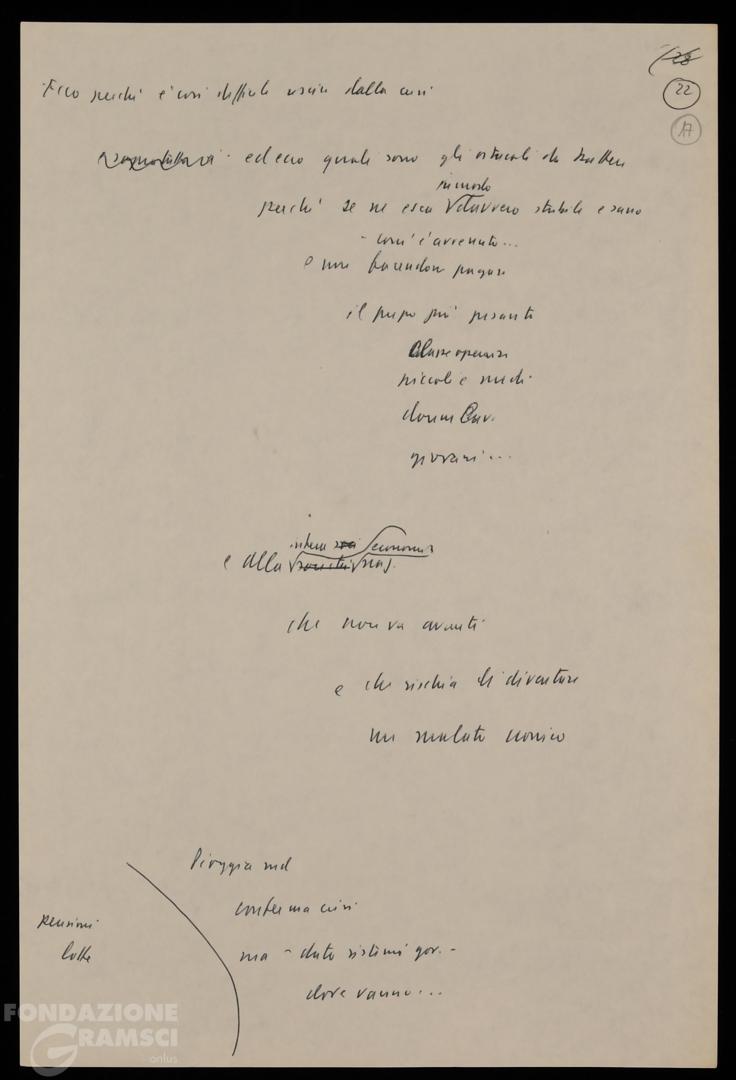 128
22
17
Ecco perché è così difficile uscire dalla crisi
ed ecco quali sono gli ostacoli da battere
in modo
perché se ne esca davvero stabile e sano
- com'è avvenuto...
e non facendone pagare
il prezzo più pesante
classe operaia
piccoli e medi
donne lav.
giovani...
intera economia
e alla società naz.
che non va avanti
e che rischia di diventare
un malato cronico
Pioggia md
conferma crisi
pensioni
ma - dato sistemi gov. -
lotte
dove vanno...
FONDAZIONE
GRAMSCI
onlus